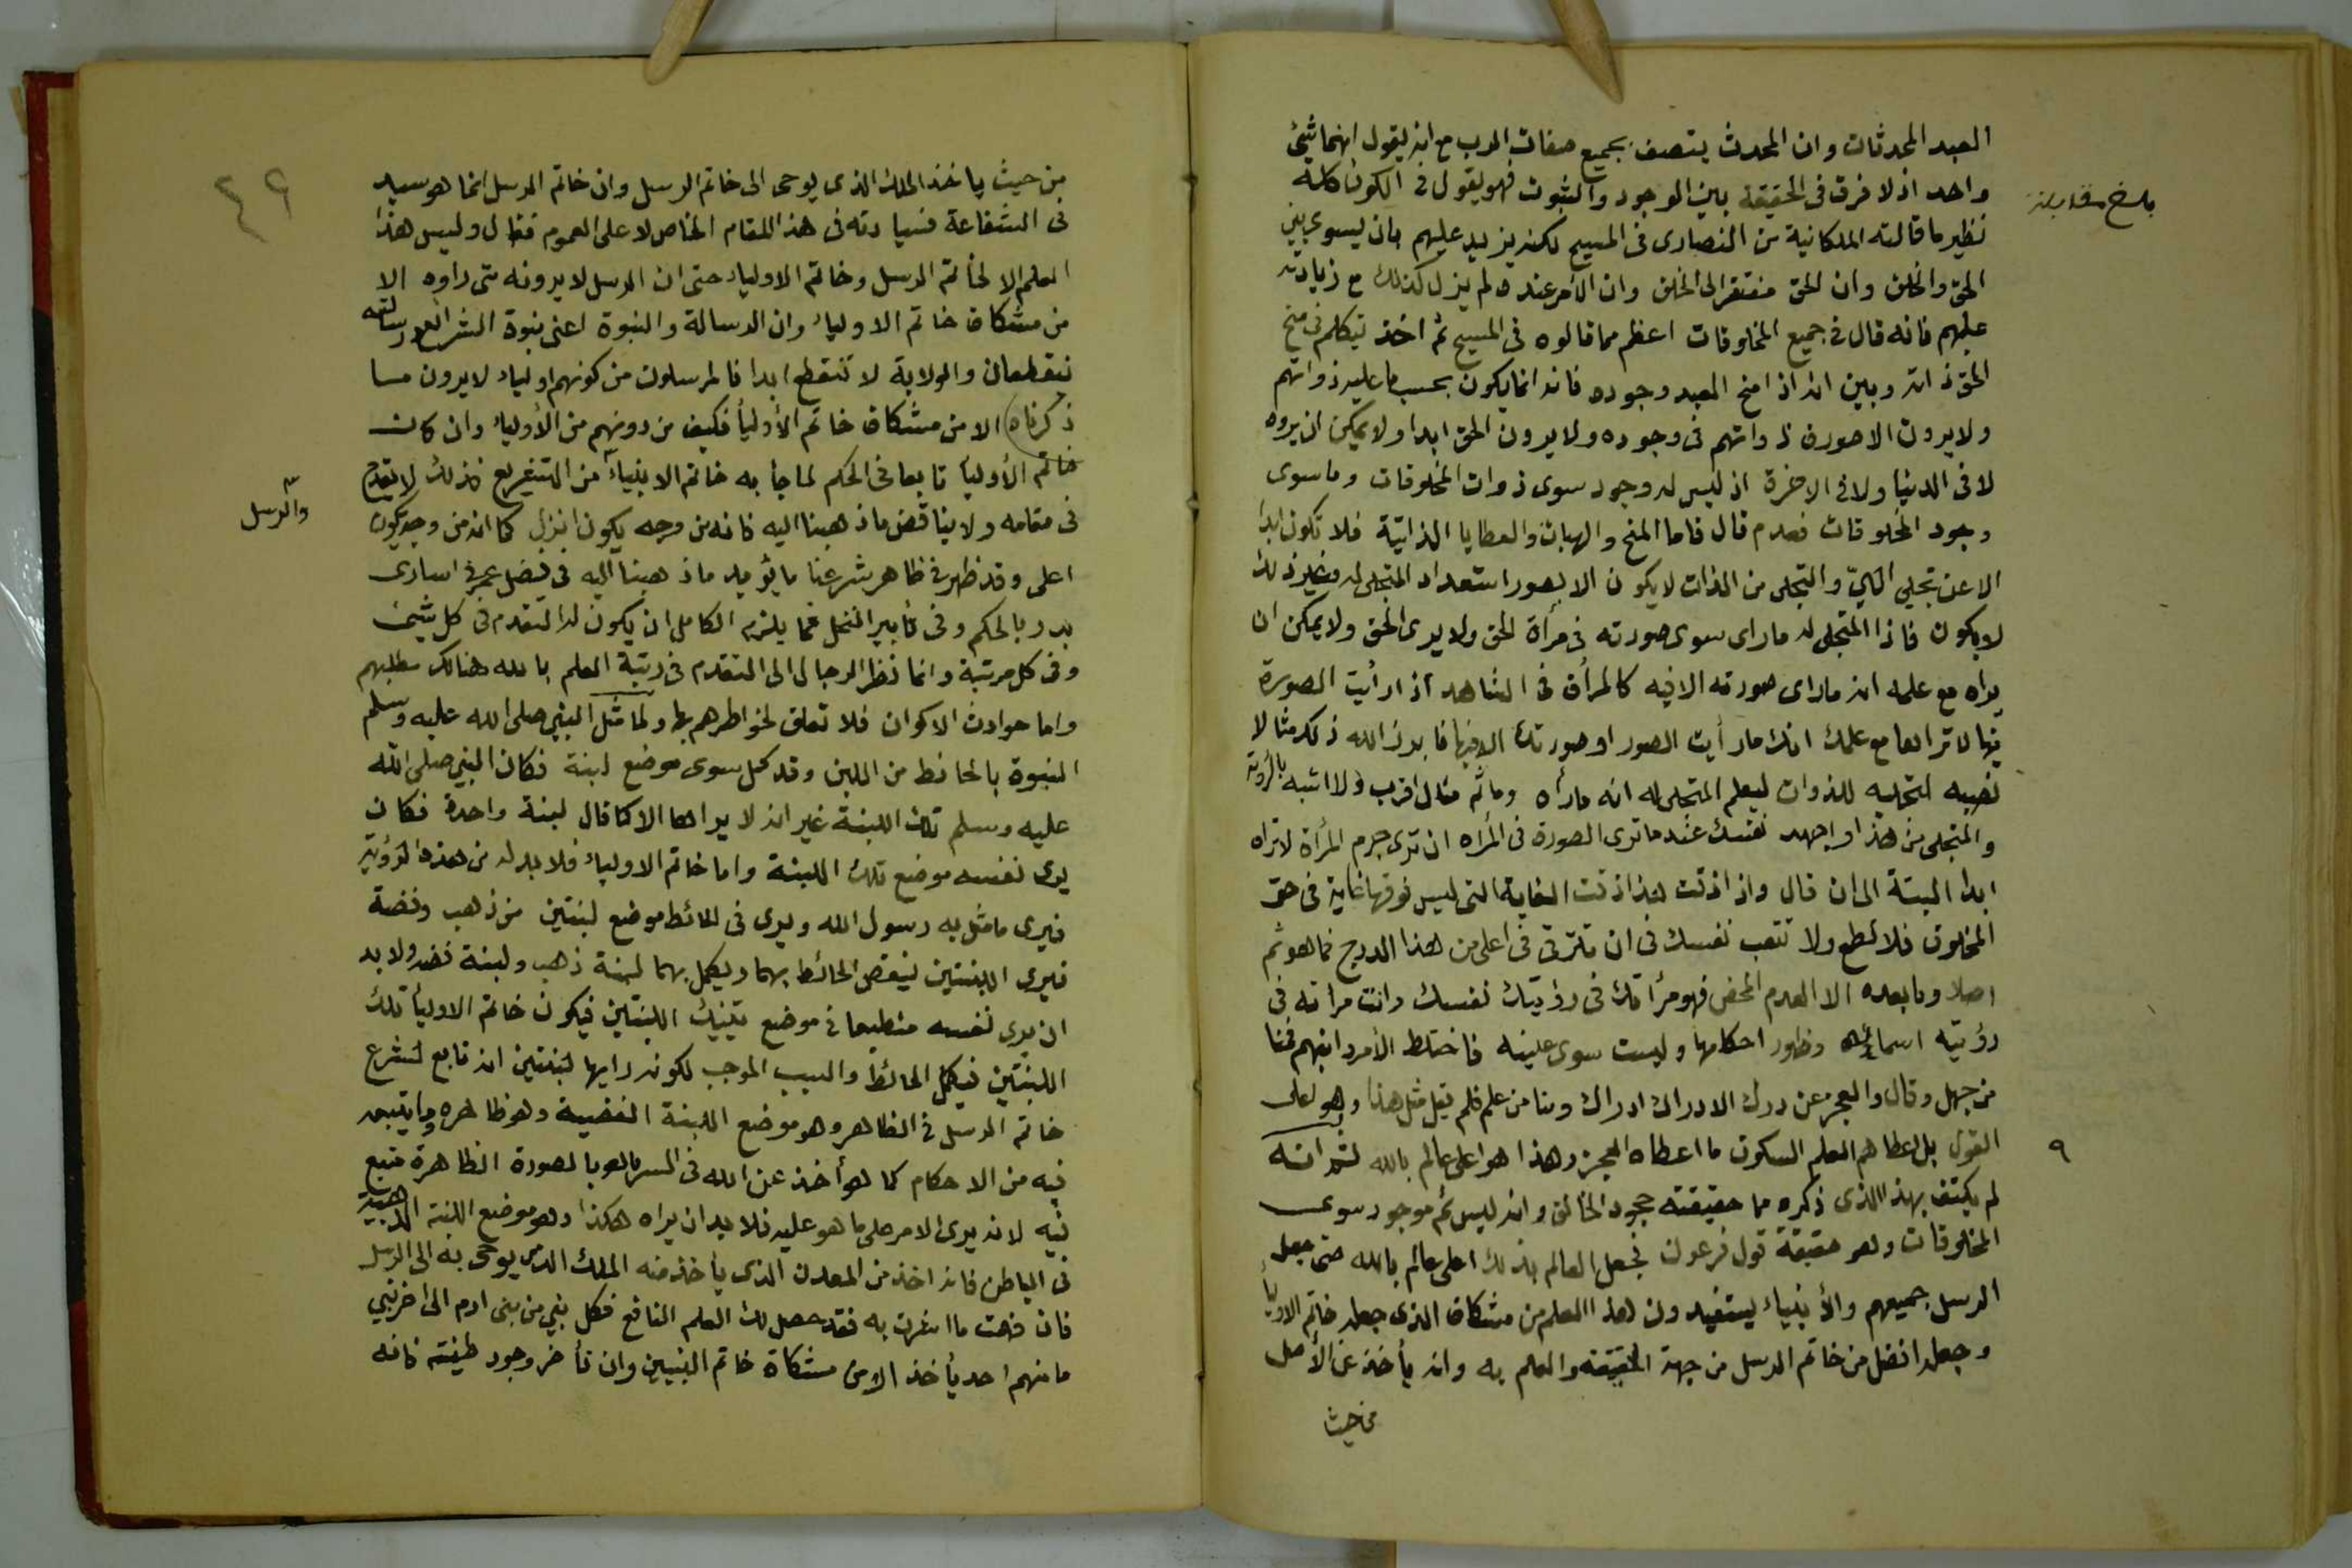 العبد المحدثات وان المحدث يتصف بجميع صفات الرب مع انه يقول انهما شيئ
واحد اذ لا فرق فى الحقيقة بين الوجود والثبوت فهو يقول فى الكون كله
بلغ مقابلة
نظير ما قالته الملكانية من النصارى فى المسيح لكنه يزيد عليهم بان يسوى بين
الحق والخلق وان الحق مفتقر الى الخلق وان الأمر عنده لم يزل كذلك مع زيادته
عليهم فانه قال فى جميع المخلوقات اعظم مما قالوه فى المسيح ثم اخذ يتكلم فى منح
الحق ذاته وبين انه اذا منح العبد وجوده فانه انما يكون بحسب ما عليه ذواتهم
ولا يرون الا صورة ذواتهم فى وجوده ولا يرون الحق ابدا ولا يمكن ان يروه
لا فى الدنيا ولا فى الاخرة اذ ليس له وجود سوى ذوات المخلوقات وما سوى
وجود المخلوقات فعدم قال فاما المنح والهبات والعطايا الذاتية فلا تكون ابدا
الا عن تجلي الهيّ والتجلى من الذات لا يكون الا بصور استعداد المتجلى له وغير ذلك
لا يكون فاذا المتجلى له ما راى سوى صورته فى مرأة الحق ولا يرى الحق ولا يمكن ان
يراه مع علمه انه ما راى صورته الا فيه كالمرأة فى الشاهد اذا رأيت الصورة
فيها لا تراها مع علمك انك ما رأيت الصور او صورتك الا فيها فابرز الله ذلك مثالا
نصبه لتجليه للذوات ليعلم المتجلى له انه ما رأه وما ثم مثال اقرب ولا اشبه بالرؤية
والتجلى من هذا واجهد نفسك عند ما ترى الصورة فى المرأه ان ترى جرم المرأة لا تراه
ابدا البتة الى ان قال واذا ذقت هذا ذقت الغاية التى ليس فوقها غاية فى حق
المخلوق فلا تطمع ولا تتعب نفسك فى ان تترقى فى اعلى من هذا الدرج فما هو ثم
اصلا وما بعده الا العدم المحض فهو مرأتك فى رؤيتك نفسك وانت مرأته فى
رؤيته اسمائه وظهور احكامها وليست سوى عينه فاختلط الأمر وانبهم فمنا
من جهل وقال والعجز عن درك الادراك ادراك ومنا من علم فلم يقل مثل هذا وهو اعلى
القول بل اعطاه العلم السكوت ما اعطاه العجز وهذا هو اعلى عالم بالله ثم انه
٩
لم يكتف بهذا الذى ذكره مما حقيقته جحود الخالق وانه ليس ثم موجود سوى
المخلوقات وهو حقيقة قول فرعون فجعل العالم بذلك اعلى عالم بالله حتى جعل
الرسل جميعهم والأنبياء يستفيدون هذا العلم من مشكاة الذى جعله خاتم الاوليأ
وجعله افضل من خاتم الرسل من جهة الحقيقة والعلم به وانه يأخذ عن الأصل
من حيث
٤٩
من حيث يأخذ الملك الذى يوحى الى خاتم الرسل وان خاتم الرسل انما هو سيد
فى الشفاعة فسيادته فى هذا المقام الخاص لا على العموم فقال وليس هذا
العلم الا لخاتم الرسل وخاتم الاولياء حتى ان الرسل لا يرونه متى راوه الا
من مشكاة خاتم الاولياء وان الرسالة والنبوة اعنى نبوة الشرائع ورسالته
تنقطعان والولاية لا تنقطع ابدا فالمرسلون من كونهم اولياء لا يرون ما
ذكرناه الا من مشكاة خاتم الأوليأ فكيف من دونهم من الأولياء وان كان
خاتم الأوليأ تابعا فى الحكم لما جأ به خاتم الانبياء من التشريع فذلك لا يقدح
والرسل
فى مقامه ولا يناقض ما ذهبنا اليه فانه من وجه يكون انزل كما انه من وجه يكون
اعلى وقد ظهر فى ظاهر شرعنا ما يؤيد ما ذهبنا اليه فى فضل عمر فى اسارى
بدر بالحكم وفى تأبير النخل فما يلزم الكامل ان يكون له التقدم فى كل شيئ
وفى كل مرتبة وانما نظر الرجال الى التقدم فى رتبة العلم بالله هنالك مطلبهم
واما حوادث الاكوان فلا تعلق لخواطرهم بها ولما مثل النبي صلى الله عليه وسلم
النبوة بالحائط من اللبن وقد كمل سوى موضع لبنة فكان النبي صلى الله
عليه وسلم تلك اللبنة غير انه لا يراها الا كما قال لبنة واحدة فكان
يرى نفسه موضع تلك اللبنة واما خاتم الاولياء فلا بد له من هذه الرؤية
فيرى ما مثل به رسول الله ويرى فى الحائط موضع لبنتين من ذهب وفضة
فيرى اللبنتين ينقص الحائط بهما ويكمل بهما لبنة ذهب ولبنة فضة ولا بد
ان يرى نفسه منطبعا فى موضع تينك اللبنتين فيكون خاتم الاوليأ تلك
اللبنتين فيكمل الحائط والسبب الموجب لكونه رايها لبنتين انه تابع لشرع
خاتم الرسل فى الظاهر وهو موضع اللبنة الفضية وهو ظاهره وما يتبعه
فيه من الاحكام كما هو أخذ عن الله فى السر ما هو بالصورة الظاهرة متبع
فيه لانه يرى الامر على ما هو عليه فلا بد ان يراه هكذا وهو موضع اللبنة الذهبية
فى الباطن فانه اخذ من المعدن الذى يأخذ منه الملك الذى يوحى به الى الرسل
فان فهمت ما اشرت به فقد حصل لك العلم النافع فكل نبي من بنى ادم الى اخر نبي
ما منهم احد يأخذ الا من مشكاة خاتم النبيين وان تأخر وجود طينته فانه